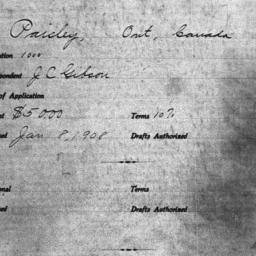 Paisley, Ont, Canada
ation 1000
pondent J C Gibson
of Application
nt $50.00 Terms 10%
ed Jan 8, 1908 Drafts Authorized
nal Terms
ed Drafts Authorized